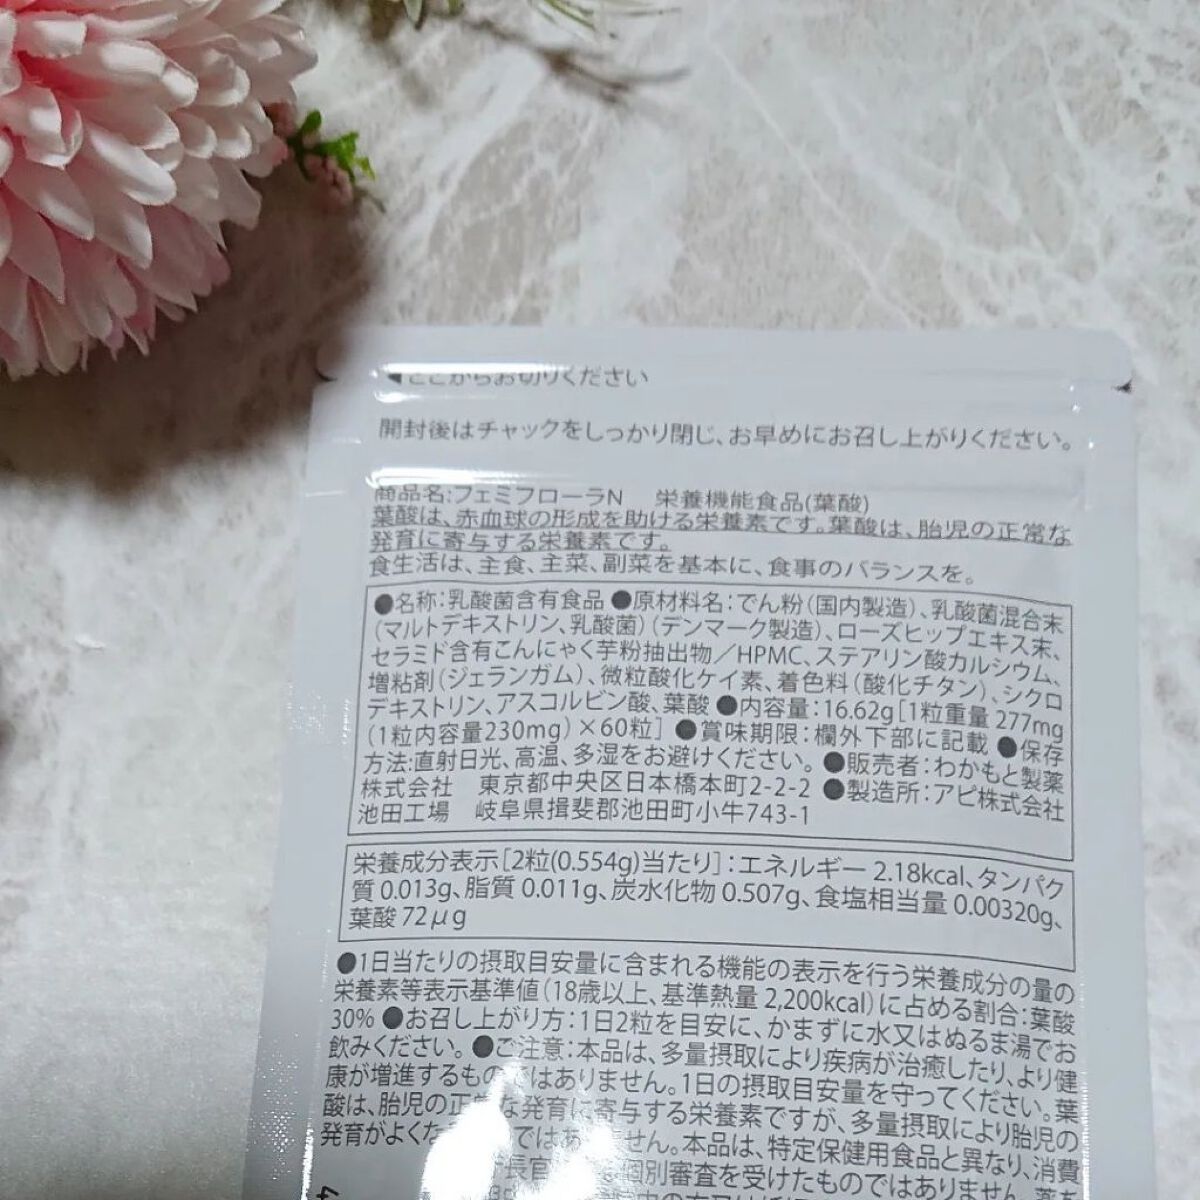 ◀ここからお切りください
開封後はチャックをしっかり閉じ、お早めにお召し上がりください。
商品名:フェミフローラN　栄養機能食品(葉酸)
葉酸は、赤血球の形成を助ける栄養素です。葉酸は、胎児の正常な
発育に寄与する栄養素です。
食生活は、主食、主菜、副菜を基本に、食事のバランスを。
●名称：乳酸菌含有食品 ●原材料名：でん粉（国内製造）、乳酸菌混合末
（マルトデキストリン、乳酸菌）（デンマーク製造）、ローズヒップエキス末、
セラミド含有こんにゃく芋粉抽出物／HPMC、ステアリン酸カルシウム、
増粘剤（ジェランガム）、微粒酸化ケイ素、着色料（酸化チタン）、シクロ
デキストリン、アスコルビン酸、葉酸 ●内容量：16.62g［1粒重量 277mg
（1粒内容量230mg）×60粒］ ●賞味期限：欄外下部に記載 ●保存
方法:直射日光、高温、多湿をお避けください。 ●販売者：わかもと製薬
株式会社　東京都中央区日本橋本町2-2-2 ●製造所：アピ株式会社
池田工場　岐阜県揖斐郡池田町小牛743-1
栄養成分表示［2粒(0.554g)当たり］：エネルギー 2.18kcal、タンパク
質 0.013g、脂質 0.011g、炭水化物 0.507g、食塩相当量 0.00320g、
葉酸 72μg
●1日当たりの摂取目安量に含まれる機能の表示を行う栄養成分の量の
栄養素等表示基準値（18歳以上、基準熱量 2,200kcal）に占める割合：葉酸
30% ●お召し上がり方：1日2粒を目安に、かまずに水又はぬるま湯でお
飲みください。 ●ご注意：本品は、多量摂取により疾病が治癒したり、より健
康が増進するものではありません。1日の摂取目安量を守ってください。葉
酸は、胎児の正常な発育に寄与する栄養素ですが、多量摂取により胎児の
発育がよくな ではありません。本品は、特定保健用食品と異なり、消費
庁長官 個別審査を受けたものではありません。